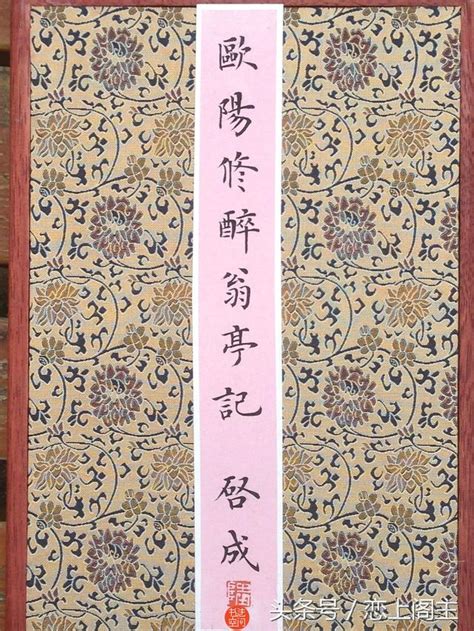 歐陽修醉翁亭記 啓成
头条号/恋上阁主